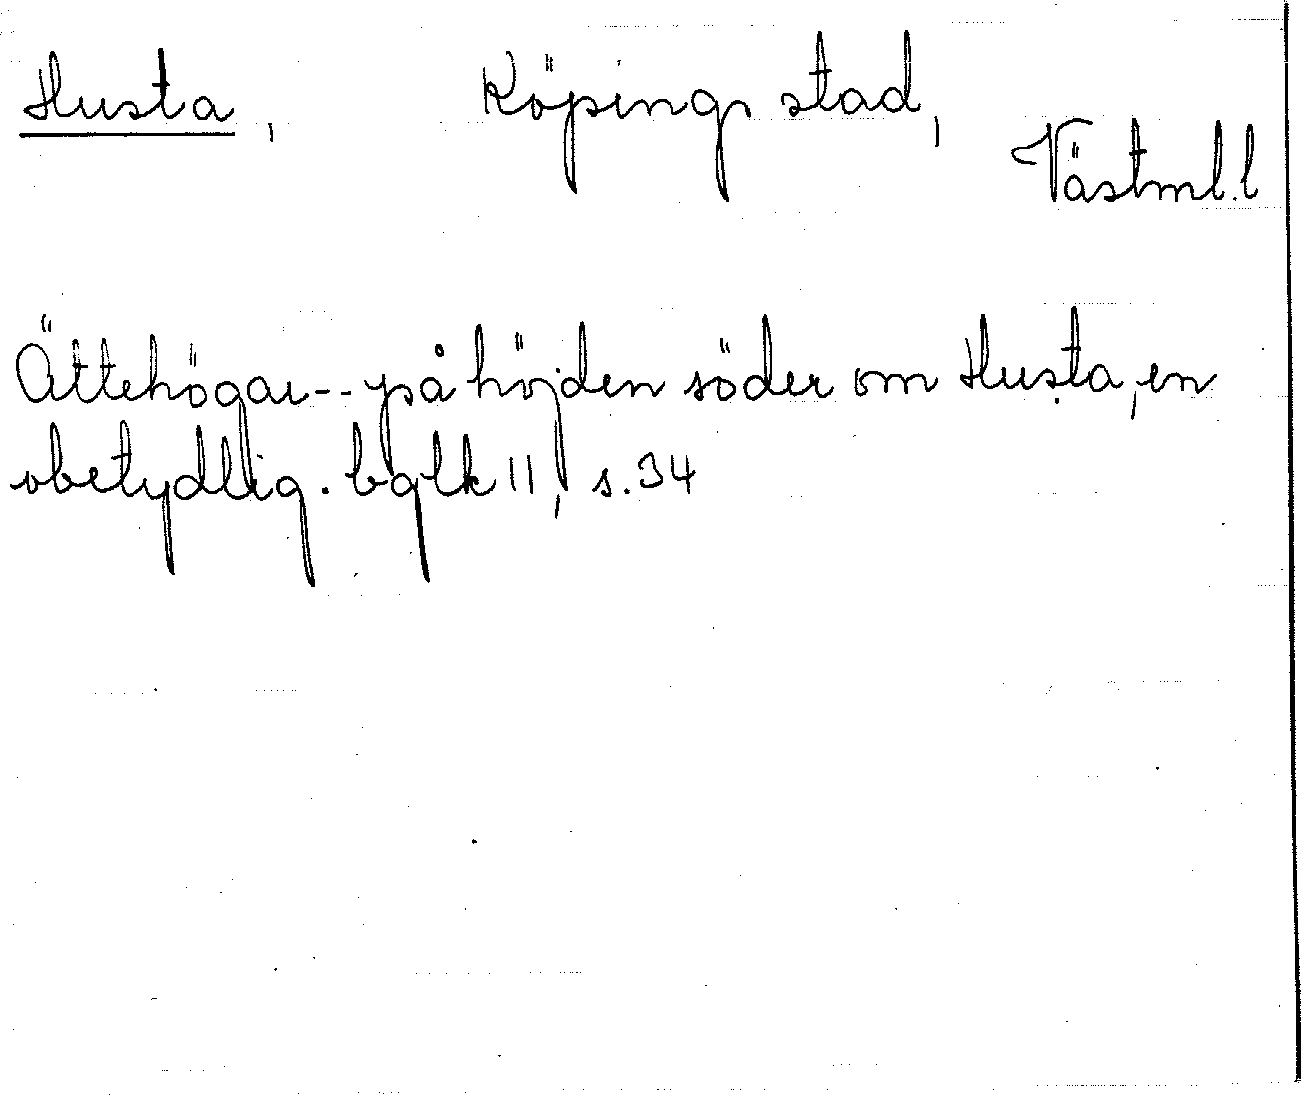 Husta, Köpings stad,
Västml. l
Ättehögar-- på höjden söder om Husta, en
obetydlig. bglk 11, s. 34